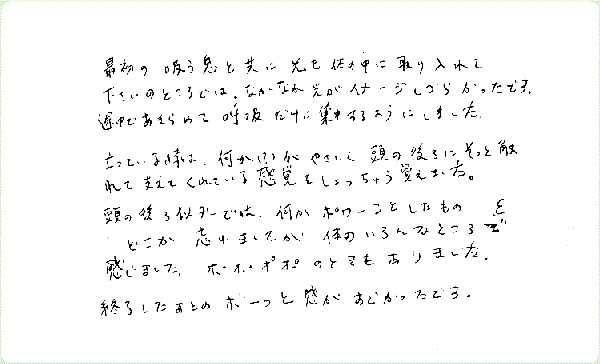 最初の吸う息と共に光を体の中に取り入れて
下さいのところでは、なかなか光がイメージしづらかったです。
途中であきらめて呼吸だけに集中するようにしました。
立っている時は、何か(?)がやさしく頭の後ろにそっと触
れて支えてくれている感覚をしょっちゅう覚えました。
頭の後ろ以外では、何かポワーンとしたものを
どこか忘れましたが体のいろんなところで
感じました。ポ、ポ、ポ、ポのときもありました。
終了したあとのボーッと感がありがたかったです。